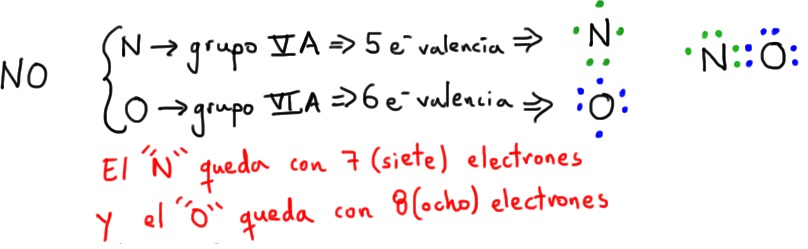 NO
N → grupo VA ⇒ 5 e⁻ valencia ⇒ N
O → grupo VIA ⇒ 6 e⁻ valencia ⇒ O
N O
El "N" queda con 7 (siete) electrones
y el "O" queda con 8 (ocho) electrones